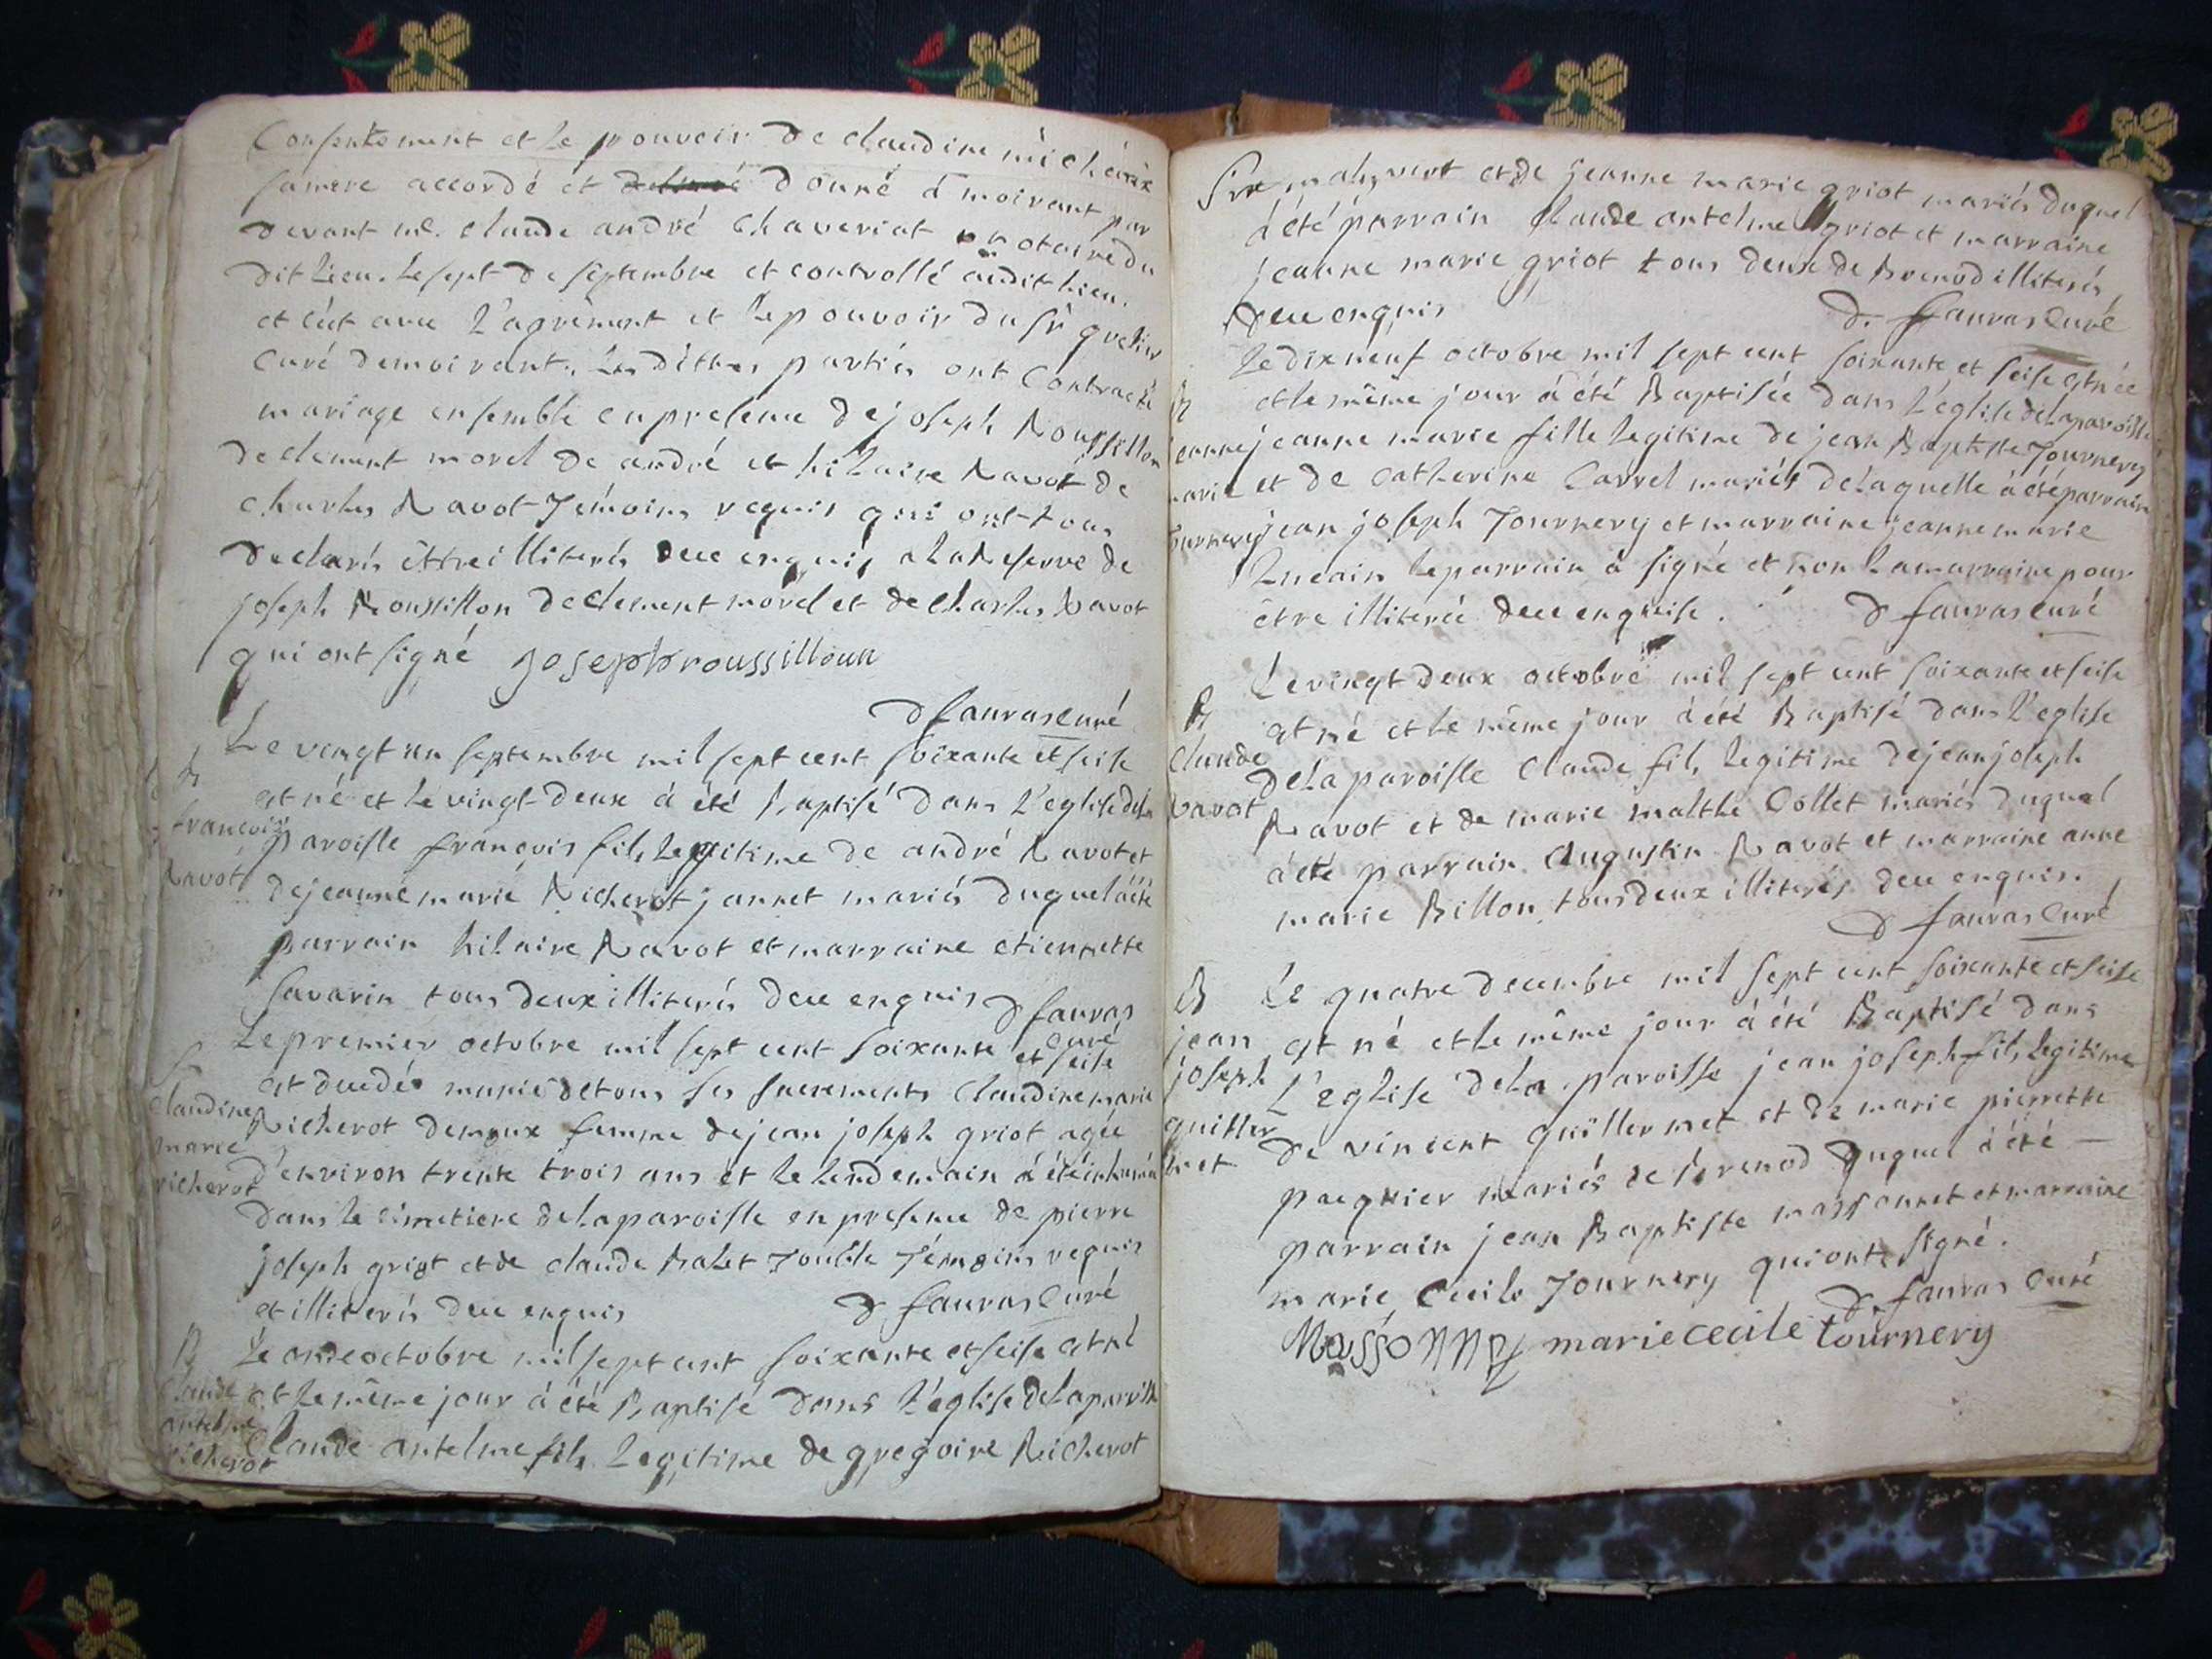 Consentement et le pouvoir de claudine michéröx
samere accordé et donné à moirant par
devant me. claude andré chaveriat notaire du
dit lieu. le sept de septembre et controllé audit lieu.
et c'ést avec l'agrément et le pouvoir du sr
curé demoirant. Les dittes partiés ont contracté
mariage ensemble en presence de joseph Roussillon
de clement morel de andré et hilaire Ravot de
charles Ravot Témoins requis qui ont tous
declarés éttre illiterés dece enquis a la Reserve de
joseph Roussillon de clement morel et de charles Ravot
qui ont signé josephroussilloun
D fauras curé
Le vingt un septembre mil sept cent soixante et seise
B
est né et le vingt deux à été baptisé dans l'eglise dela
francois
paroisse francois fils legitime de andré Ravot et
Ravot
de jeanne marie Richerot jannet mariés duquel à été
parrain hilaire Ravot et marraine etiennette
savarin tous deux illiterés dece enquis D fauras
curé
Le premier octobre mil sept cent soixante et seise
S
est decedé munie de tous ses sacrements Claudine marie
Claudine
Richerot demeux femme de jean joseph griot agée
marie
d'environ trente trois ans et le lendemain à été inhumée
richerot
dans le cimetiere de la paroisse en presence de pierre
joseph griot et de claude Balet Touble Témoins requis
et illiterés dece enquis D fauras Curé
B Le onse octobre mil sept cent soixante et seise est né
Claude et le même jour à été Baptisé dans l'église de la paroisse
antelme
Claude antelme fils legitime de gregoire Richerot
richerot
et de jeanne marie griot mariés duquel
à été parrain Claude antelme griot et marraine
jeanne marie griot tous deux de Brenod illiterés
dece enquis D. fauras Curé
Le dix neuf octobre mil sept cent soixante et seise est née
B
et le même jour à été Baptisée dans l'église de la paroisse
jeanne jeanne marie fille legitime de jean Baptiste Tournery
marie et de catherine Carrel mariés de laquelle à été parrain
Tournery jean joseph Tournery et marraine jeanne marie
le parrain à signé et non la marraine pour
être illiterée dece enquise. D fauras curé
Le vingt deux octobre mil sept cent soixante et seise
B
est né et le même jour à été Baptisé dans l'eglise
Claude
de la paroisse Claude fils legitime de jean joseph
Ravot
Ravot et de marie malthe Collet mariés duquel
à été parrain Augustin Ravot et marraine anne
marie Billon tous deux illiterés dece enquis.
D fauras Curé
B Le quatre decembre mil sept cent soixante et seise
jean est né et le même jour à été Baptisé dans
joseph L'eglise de la paroisse jean joseph fils legitime
guiller de vincent guillermet et de marie pierrette
met
pacquier mariés de Brenod duquel à été
parrain jean Baptiste massonnet et marraine
marie Cecile Tournery qui ont signé.
D. fauras Curé
Massonnet marie cecile tournery